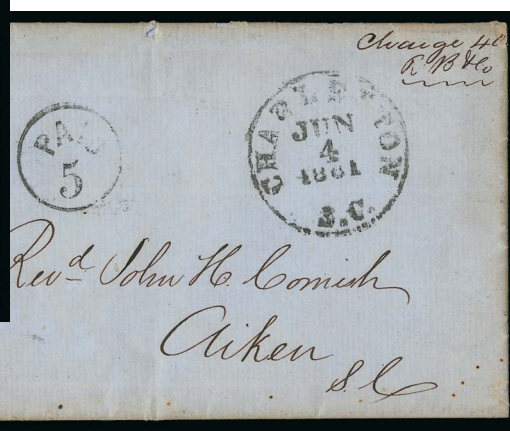 Charge 46
R B & Co
PAID
5
CHARLESTON
JUN
4
1861
S.C.
Revd John H. Cornish
Aiken
S. C